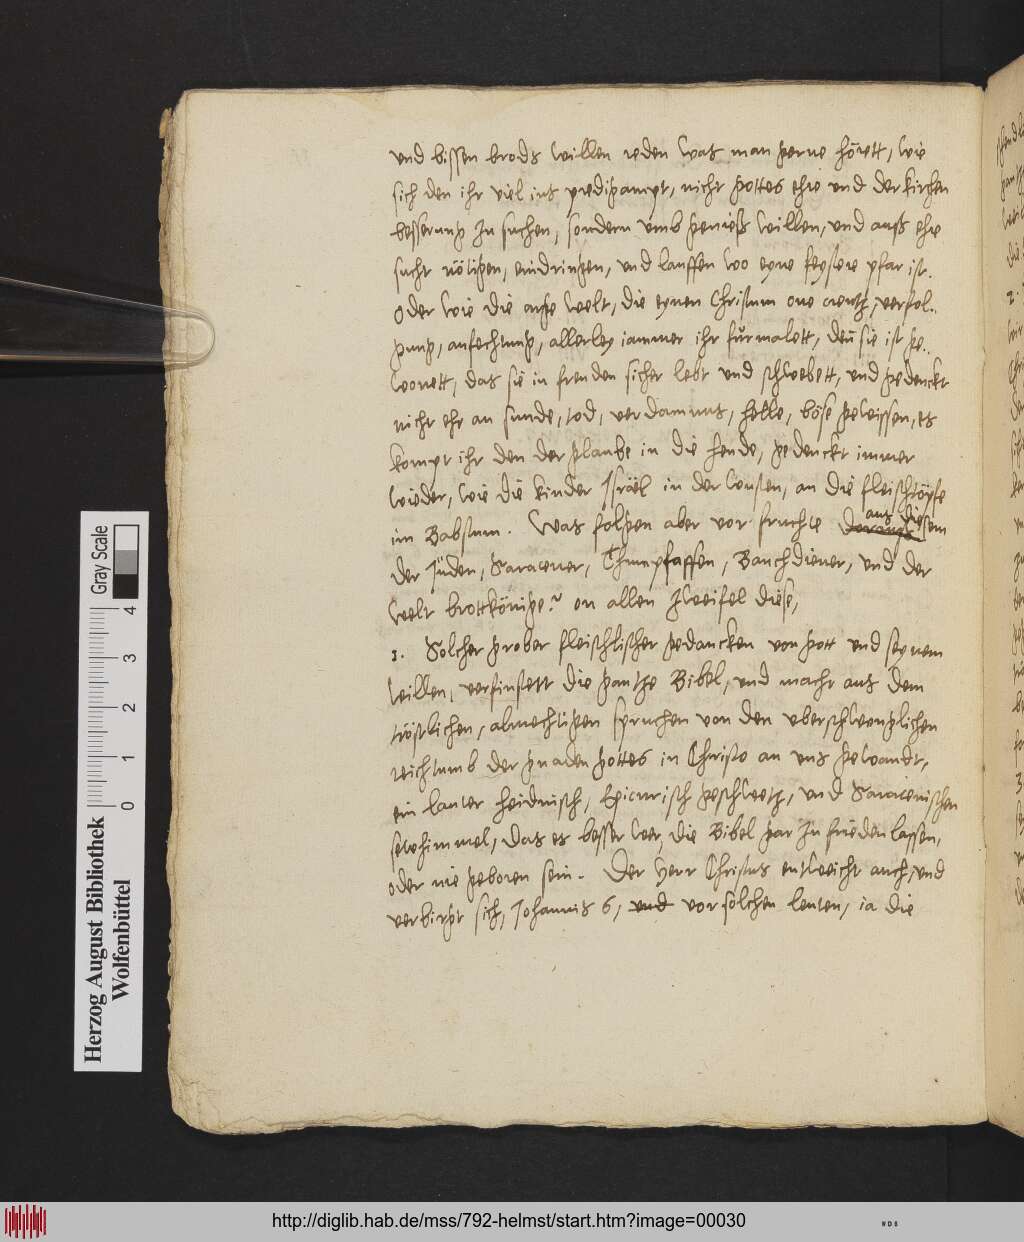 und bissen brods willen reden was man gerne hörett, wie
sich den ihr viel ins predigampt, nicht gottes ehre und der kirchen
besserung zu suchen, sondern umb genieß willen, und auß ehr
sucht nötigen, eindringen, und lauffen wo eyne feystere pfar ist.
Oder wie die arge welt, die eynen Christum one creutz, verfol-
gung, anfechtung, allerley iammer ihr fürmalett, den sie ist ge-
wonett, das sie in freuden sicher lebt und schwebett, und gedenckt
nicht ehr an sunde, tod, verdamnus, helle, böse gewissen, es
kompt ihr den der glaube in die hende, gedenckt immer
wieder, wie die kinder Israel in der wusten, an die fleischtöpfe
im Babstum. Was folgen aber vor fruchte aus diesem
der Jüden, Saracener, Thumpfaffen, Bauchdiener, und der
welt brottkönige? on allen zweifel diese,
1. Solcher grober fleischlischer gedancken von gott und seynem
willen, verfinstert die gantze Bibel, und macht aus dem
tröstlichen, almechtigen spruchen von den uberschwenglichen
reichtumb der gnaden gottes in Christo an uns gewandt,
ein lauter heidnisch, Epicurisch geschwetz, und Saracenischen
sewhimmel, das es besser wer, die Bibel gar zu frieden lassen,
oder nie geboren sein. Der Herr Christus entweicht auch, und
verbirgt sich, Johannis 6, und vor solchen leuten, ia die
Herzog August Bibliothek
Wolfenbüttel
Gray Scale
0 1 2 3 4
http://diglib.hab.de/mss/792-helmst/start.htm?image=00030